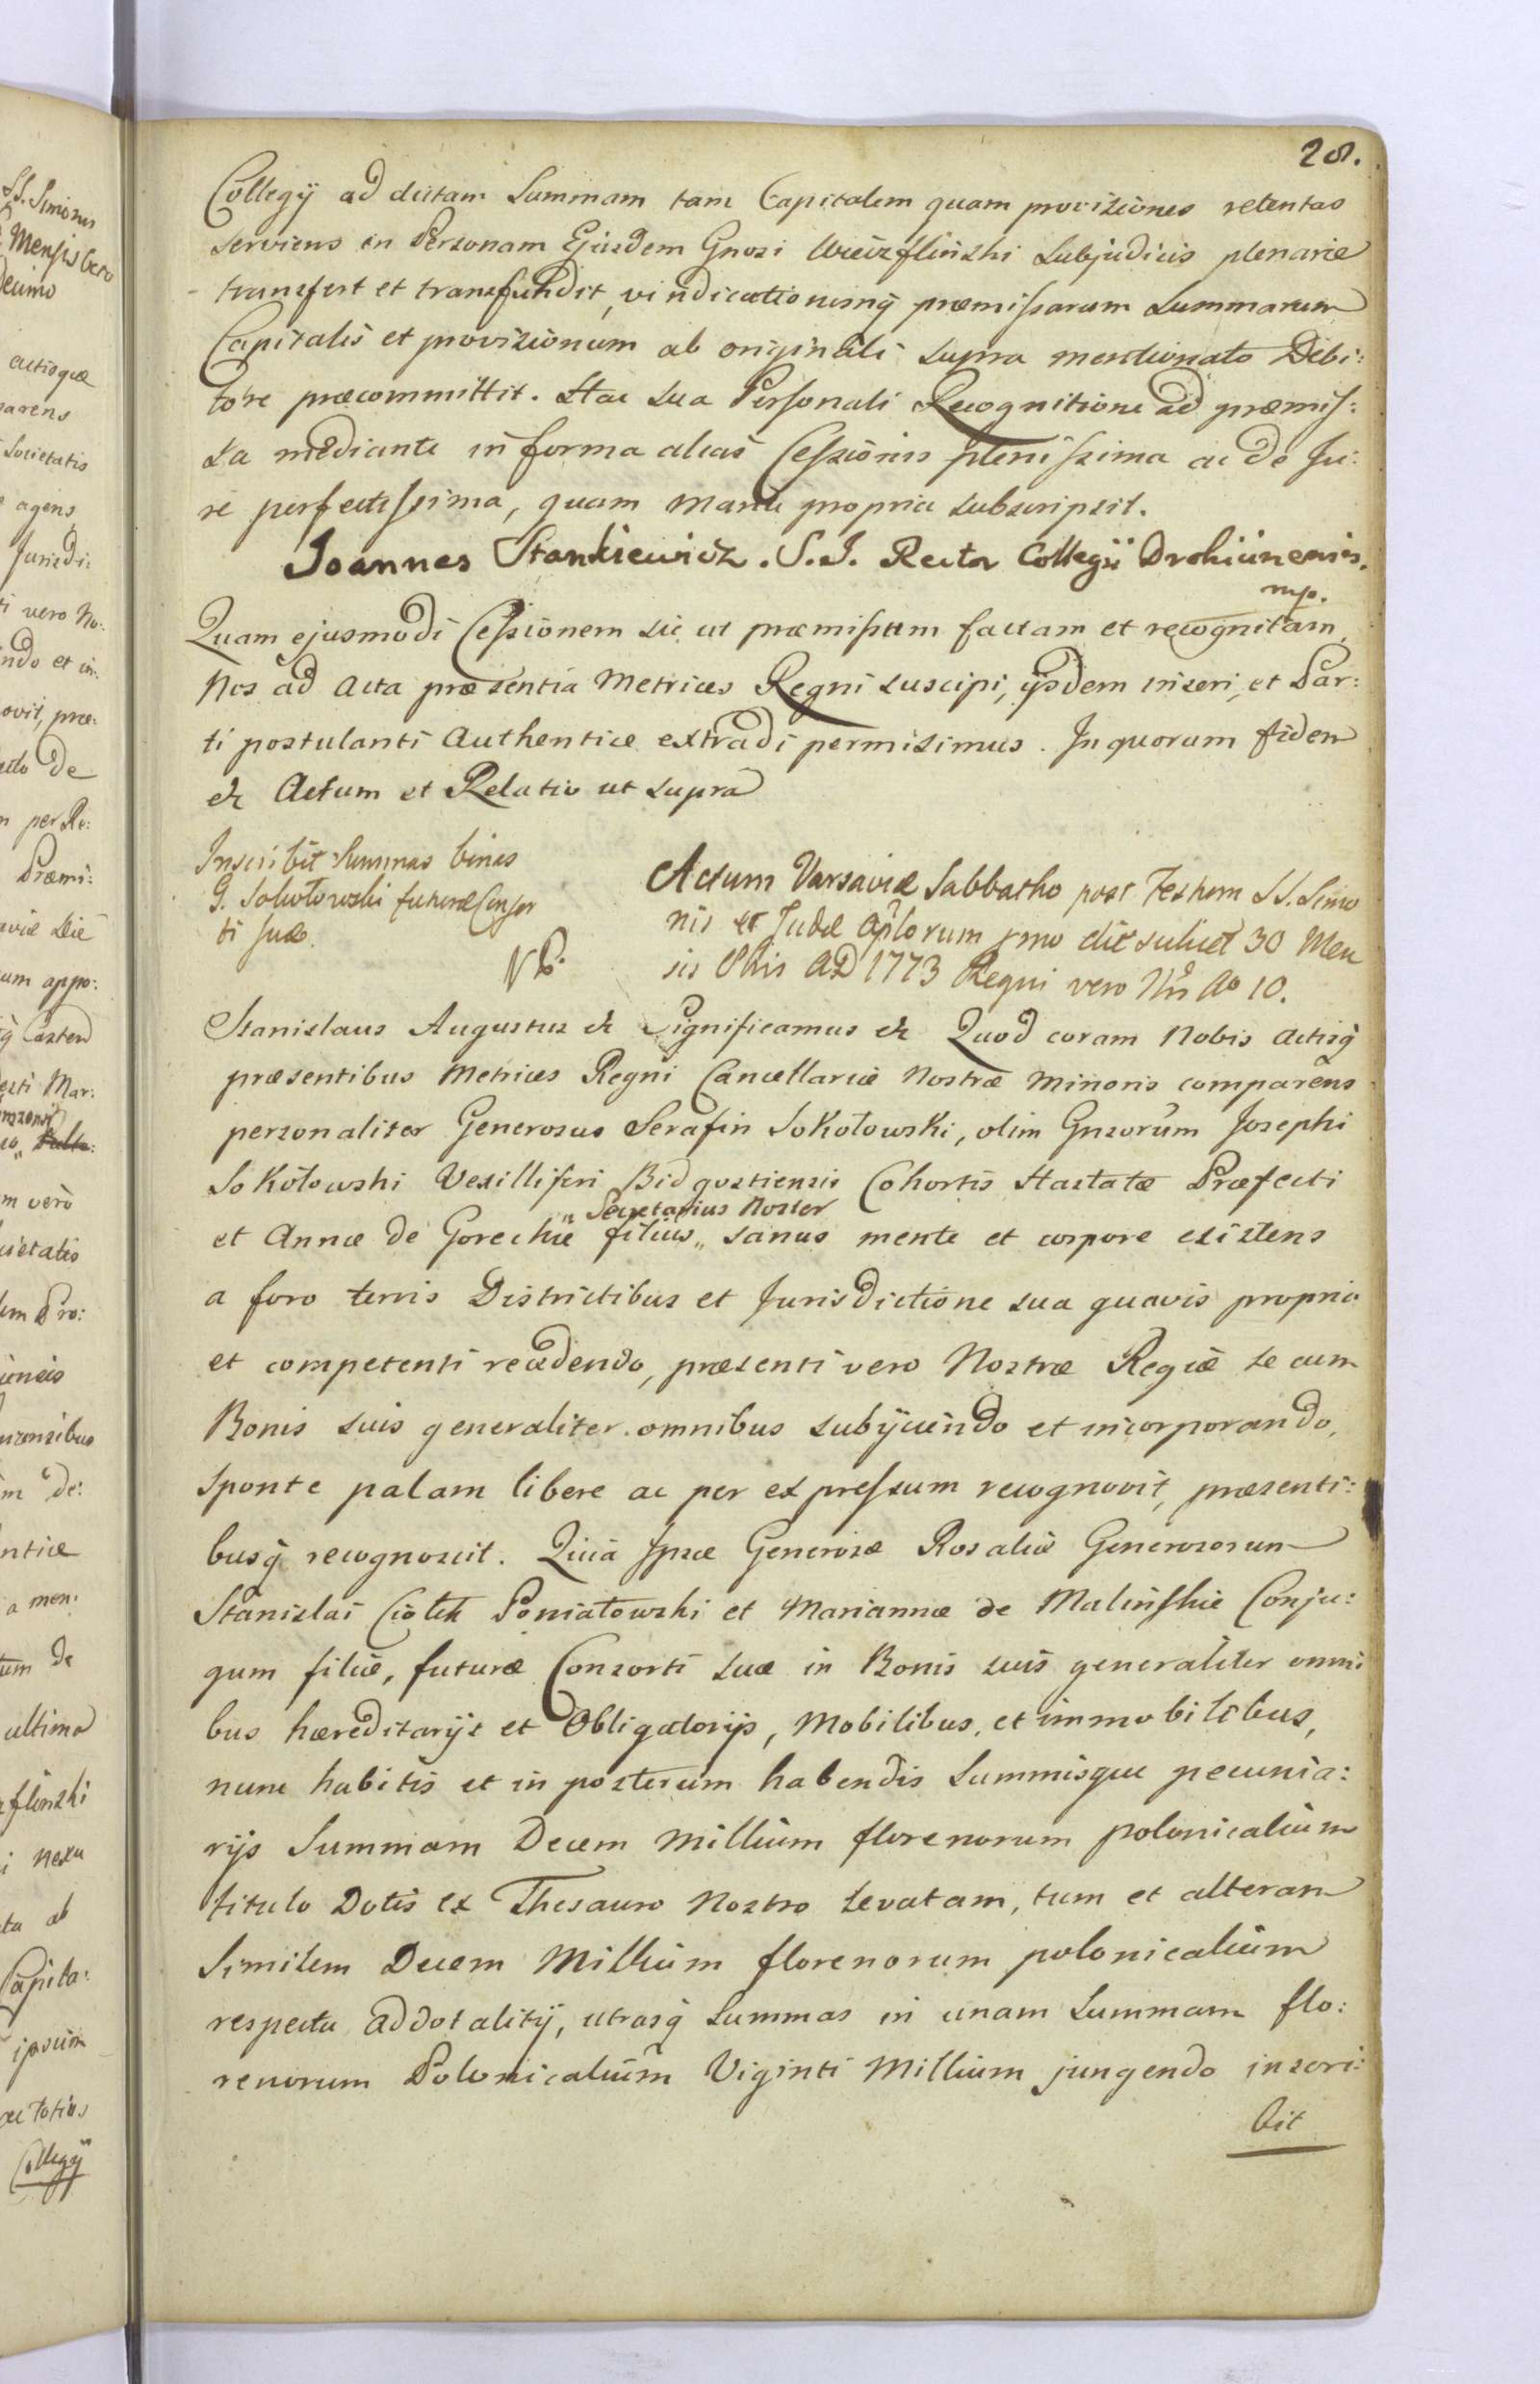 28.
Collegij ad dictam Summam tam Capitalem quam provisiones retentas
serviens in Personam Ejusdem Gnosi subjudicis plenarie
transfert et transfundit, vindicationemq̃ præmissarum Summarum
Capitalis et provisionum ab originali supra mentionato Debi:
tore præcommittit. Hac sua Personali Recognitione ad præmis:
sa mediante in forma alias Cessionis plenissima ac de Ju:
re perfectissima, quam manu propria subscripsit.
Joannes Stankiewicz. S.J. Rector Collegii Drohicinensis.
mp.
Quam ejusmodi Cessionem sic ut præmissum factam et recognitam,
Nos ad Acta præsentia Metrices Regni suscipi, ijsdem inseri, et Par:
ti postulanti Authentice extradi permisimus. In quorum fidem
&c Actum et Relatio ut supra
Inscribit Summas binas
G. Sokołowski futuræ Consor
ti suæ.
NB.
Actum Varsaviæ Sabbatho post Festum SS. Simo
nis et Judæ Aplorum pmo die scilicet 30 Men
sis 8bris AD 1773 Regni vero Nri Ao 10.
Stanislaus Augustus &c Significamus &c Quod coram Nobis Actisq̃
præsentibus Metrices Regni Cancellariæ Nostræ Minoris comparens
personaliter Generosus Serafin Sokołowski, olim Gnsorum Josephi
Sokołowski Vexilliferi Bidgostiensis Cohortis Hastatæ Præfecti
" Secretarius Noster
et Annæ de Goreckie filius „ sanus mente et corpore existens
a foro terris Districtibus et Jurisdictione sua quavis propria
et competenti recedendo, præsenti vero Nostræ Regiæ se cum
Bonis suis generaliter omnibus subijciendo et incorporando,
sponte palam libere ac per expressum recognovit, præsenti:
busq̃ recognoscit. Quia Ipse Generosæ Rosaliæ Generosorum
Stanislai Ciołek Poniatowski et Mariannæ de Malinskie Conju:
gum filiæ, futuræ Consorti suæ in Bonis suis generaliter omni
bus hæreditarijs et Obligatorijs, Mobilibus, et immobilibus,
nunc habitis et in posterum habendis Summisque pecunia:
rijs Summam Decem Millium florenorum polonicalium
titulo Dotis ex Thesauro Nostro levatam, tum et alteram
Similem Decem Millium florenorum polonicalium
respectu addotalitij, utrasq̃ Summas in unam Summam flo:
renorum Polonicalium Viginti Millium jungendo inscri:
bit